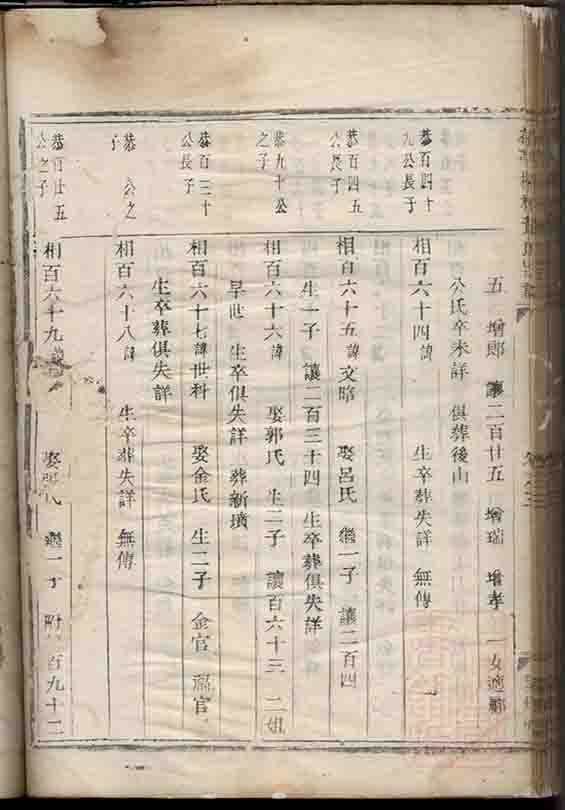 五 增郎 讓二百廿五 增瑞 增孝 一女適鄭
公氏卒未詳 俱葬後山
恭百四十
九公長子
相百六十四諱 生卒葬失詳 無傳
恭百四五
公長子
相百六十五諱文暗 娶呂氏 繼一子 讓二百四
生一子 讓二百三十四 生卒葬俱失詳
恭九十公
之子
相百六十六諱 娶郭氏 生二子 讓百六十三 二姐
早世 生卒俱失詳 葬新墳
恭百三十
公長子
相百六十七諱世科 娶金氏 生二子 金官 福官
生卒葬俱失詳
恭 公之
子
相百六十八諱 生卒葬失詳 無傳
恭百廿五
公之子
相百六十九諱 娶 氏 繼一子 百九十二